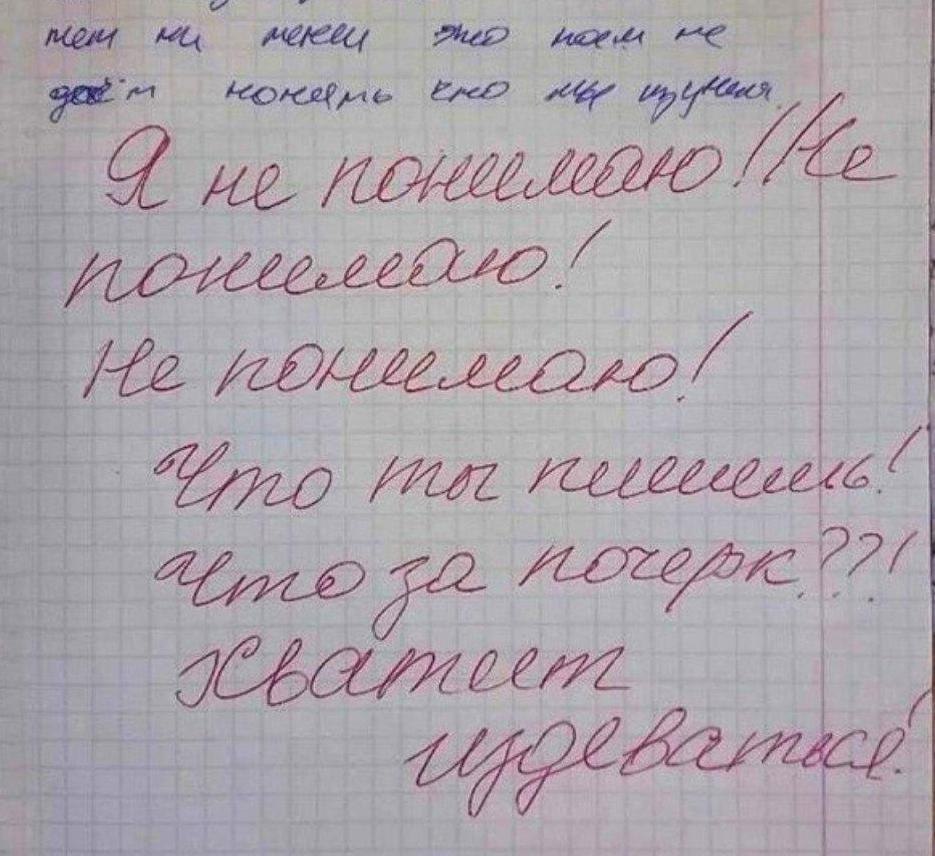 это нам не
понять что мы изучили
Я не понимаю! Не
понимаю!
Не понимаю!
Что ты пишешь!
Что за почерк??!
Хватит
издеваться!